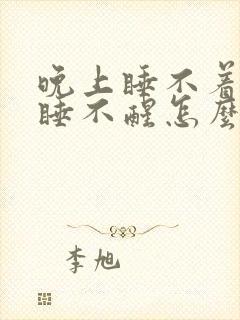 晚上睡不着
睡不醒怎麼
李旭